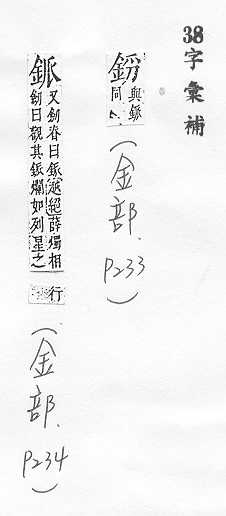 38字彙補
與釽
同
（金部.P233）
釽
又釰脊曰釽越絕薛燭相
釰曰觀其釽爛如列星之
行
（金部.P234）